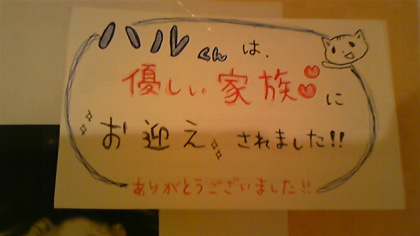 ハルくんは、
優しい家族に
お迎えされました!!
ありがとうございました!!